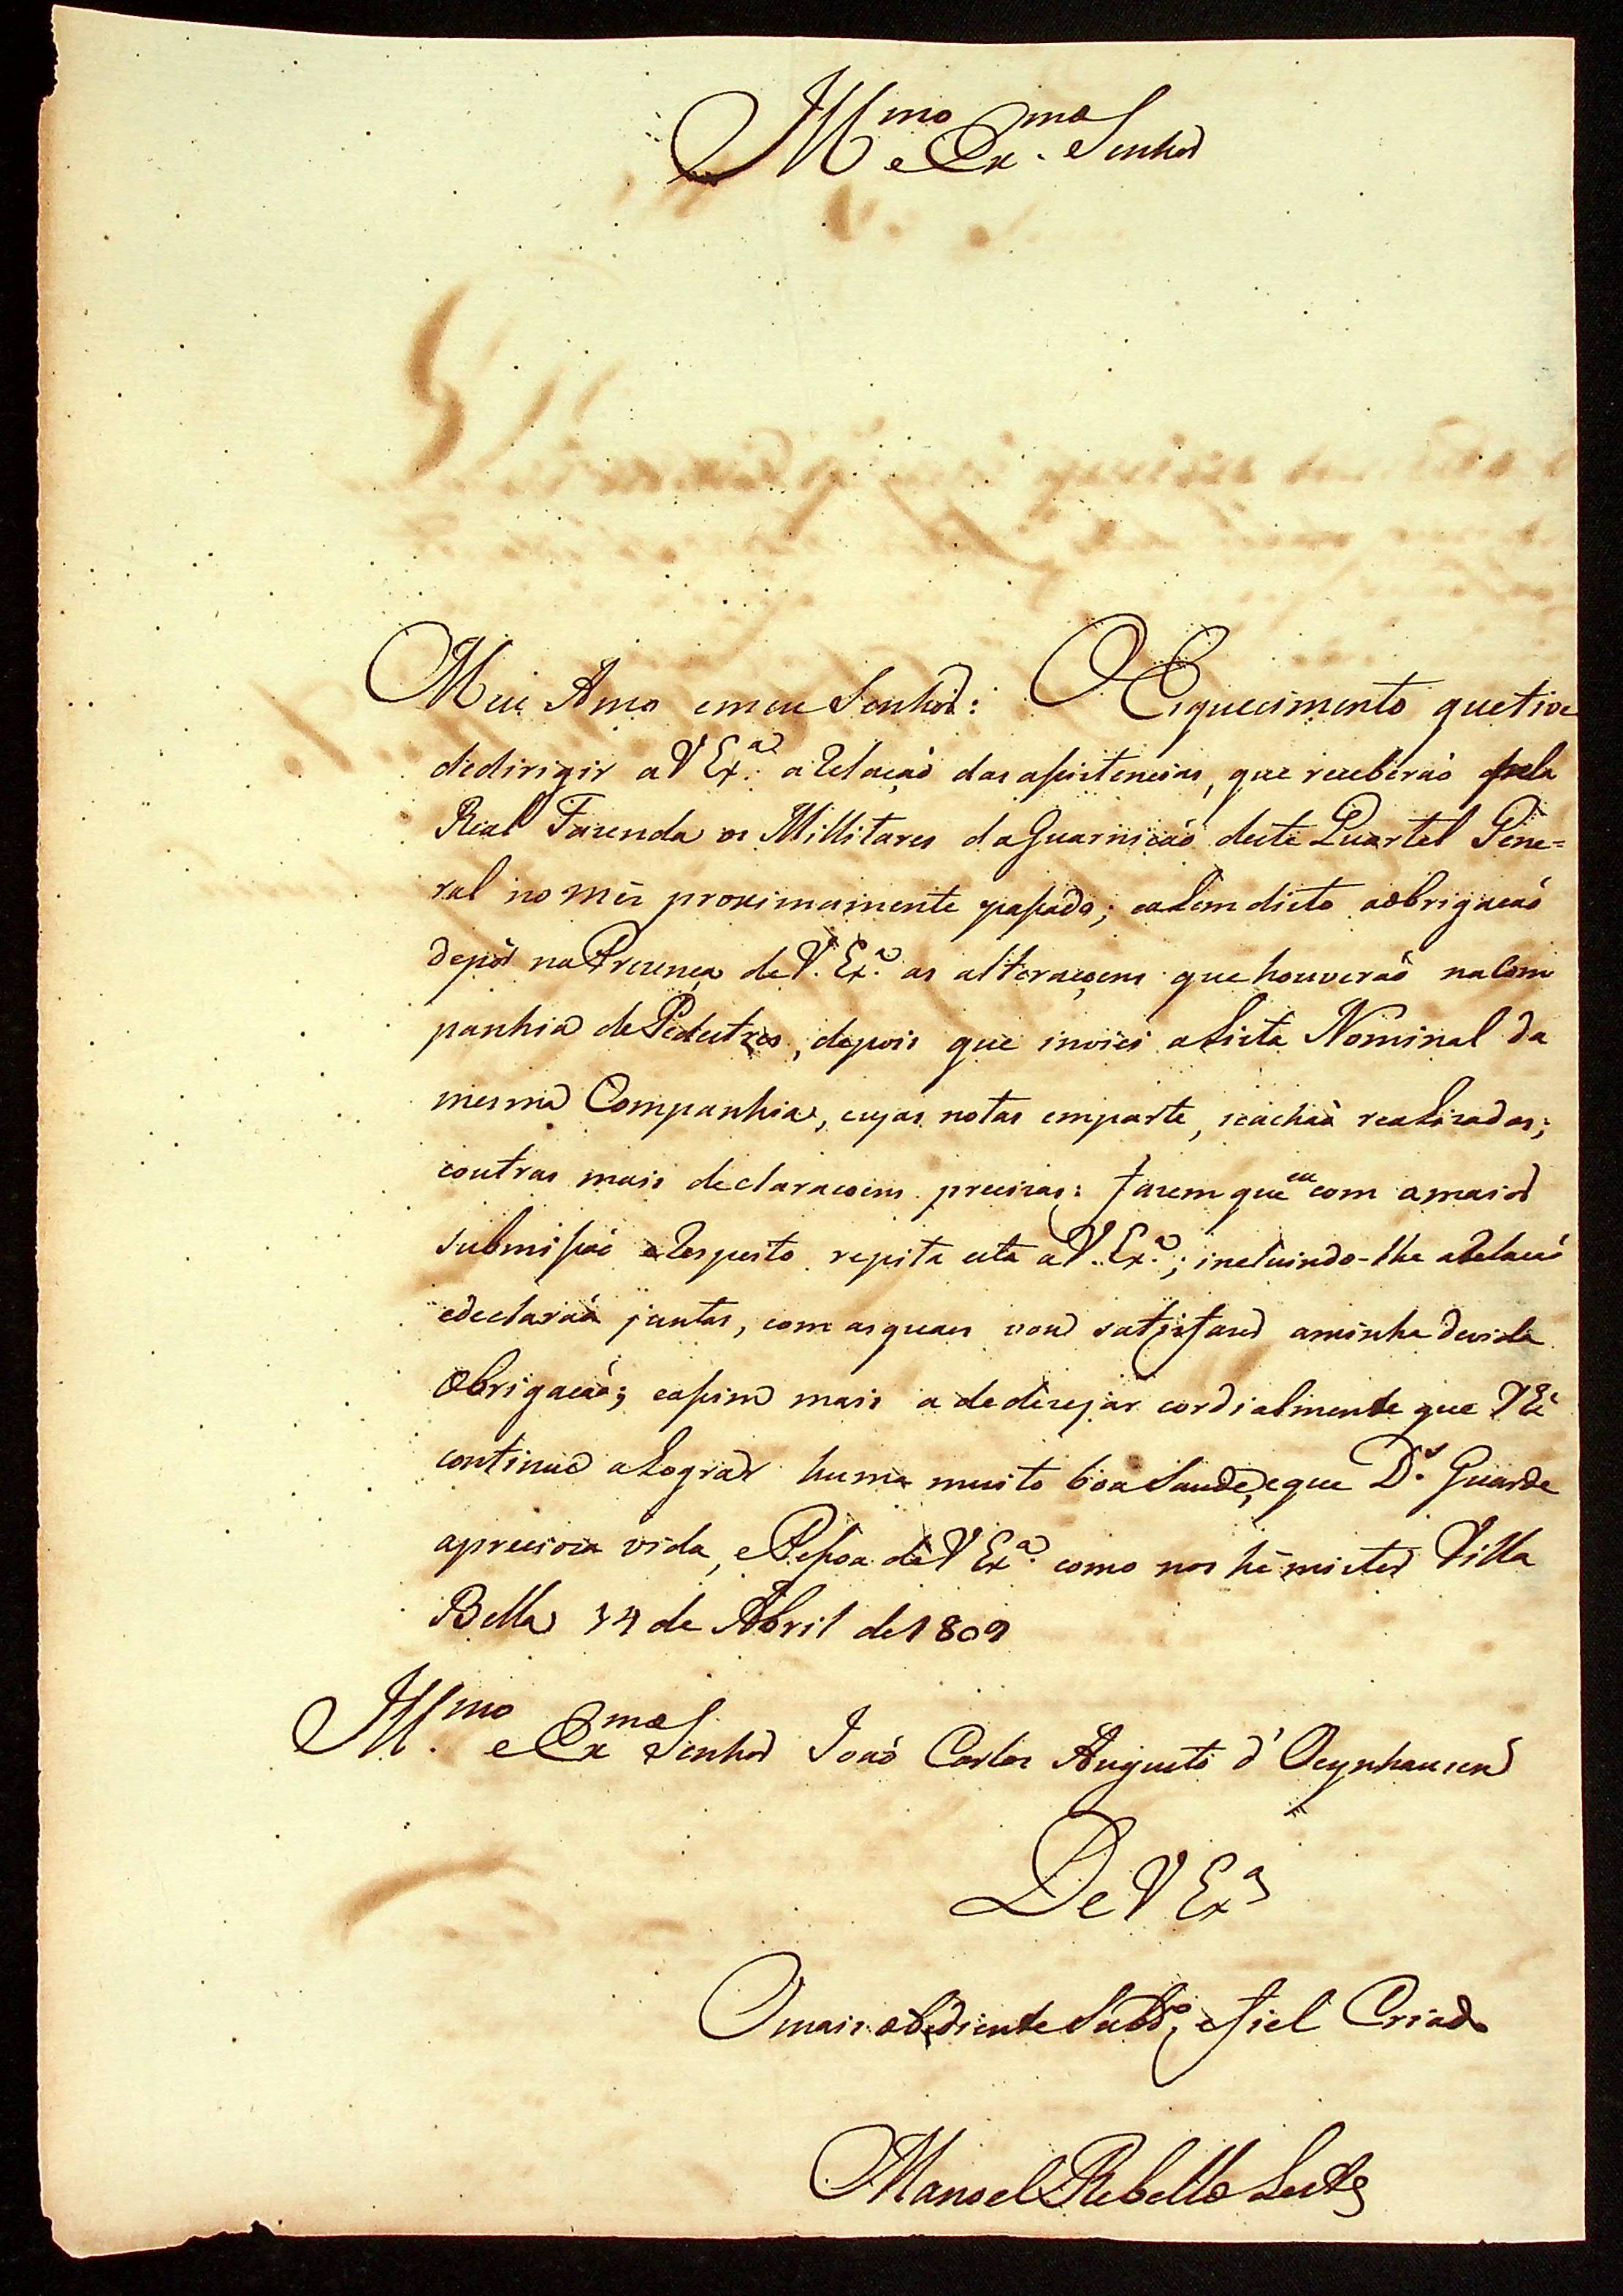 Ill.mo e Ex.mo Senhor
Meu Amo emeu Senhor: O Esquecimento quetive
dedirigir aV Ex.a a Relaçaõ das assistencias, que receberaõ pela
Real Fazenda os Millitares daGuarniçaõ deste Quartel Gene=
ral no mêz proximamente passado; ealem disto aobrigacaõ
depôr naPrezença deV. Ex.a as alteraçoens que houveraõ naCom
panhia dePedestres, depois que inviei aLista Nominal da
mesma Companhia, cujas notas emparte, seachaõ realizadas;
eoutras mais declaracoens precizas: fazem que eu com amaior
submissaõ eRespeito repita esta aV. Ex.a; incluindo-lhe aRelacaõ
edeclaraã juntas, com asquaes vou satisfazer aminha devida
Obrigacaõ; eassim mais a dedezejar cordialmente que V Ex.a
continue aLograr huma muito boa Saude, eque D.s Guarde
apreciosa vida, ePessoa deV Ex.a como nos hé mister Villa
Bella 14 de Abril de1809
Ill.mo e Ex.mo Senhor Joaõ Carlos Augusto d' Oeynhausen
De V Ex.a
Omais obediente Subd.o, efiel Criado
Manoel Rebello Leite